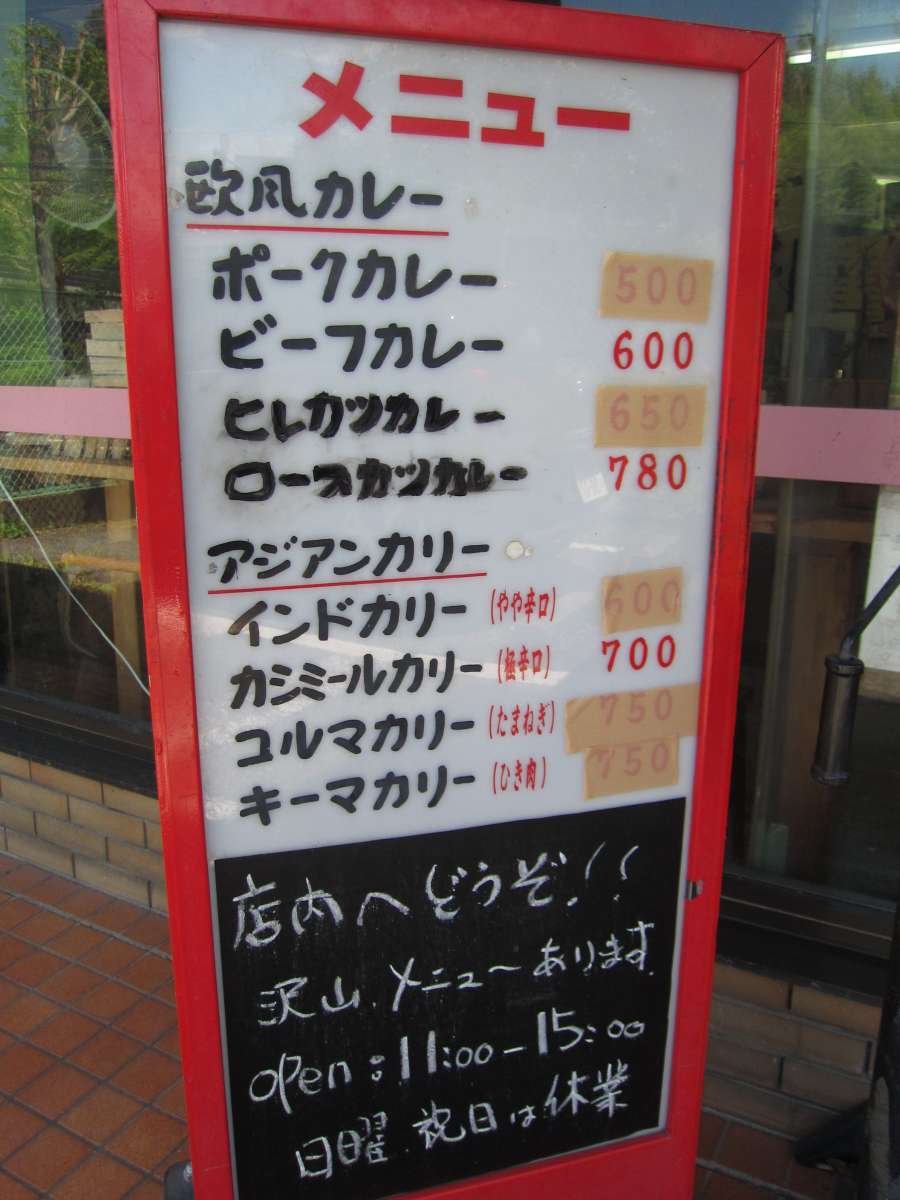 メニュー
欧風カレー
ポークカレー 500
ビーフカレー 600
ヒレカツカレー 650
ロースカツカレー 780
アジアンカリー
インドカリー (やや辛口) 600
カシミールカリー (極辛口) 700
コルマカリー (たまねぎ) 750
キーマカリー (ひき肉) 750
店内へどうぞ!!
沢山メニューあります
open:11:00-15:00
日曜.祝日は休業